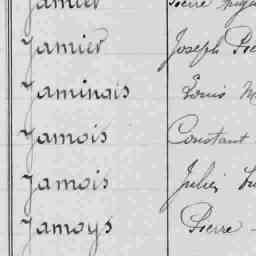 Jamier Pierre
Jamier Joseph
Jaminais Louis
Jamois Constant
Jamois Julien
Jamoys Pierre